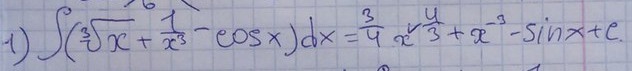 1) ∫(∛x + 1/x³ - cosx)dx = 3/4 x^4/3 + x⁻³ - sinx + c.